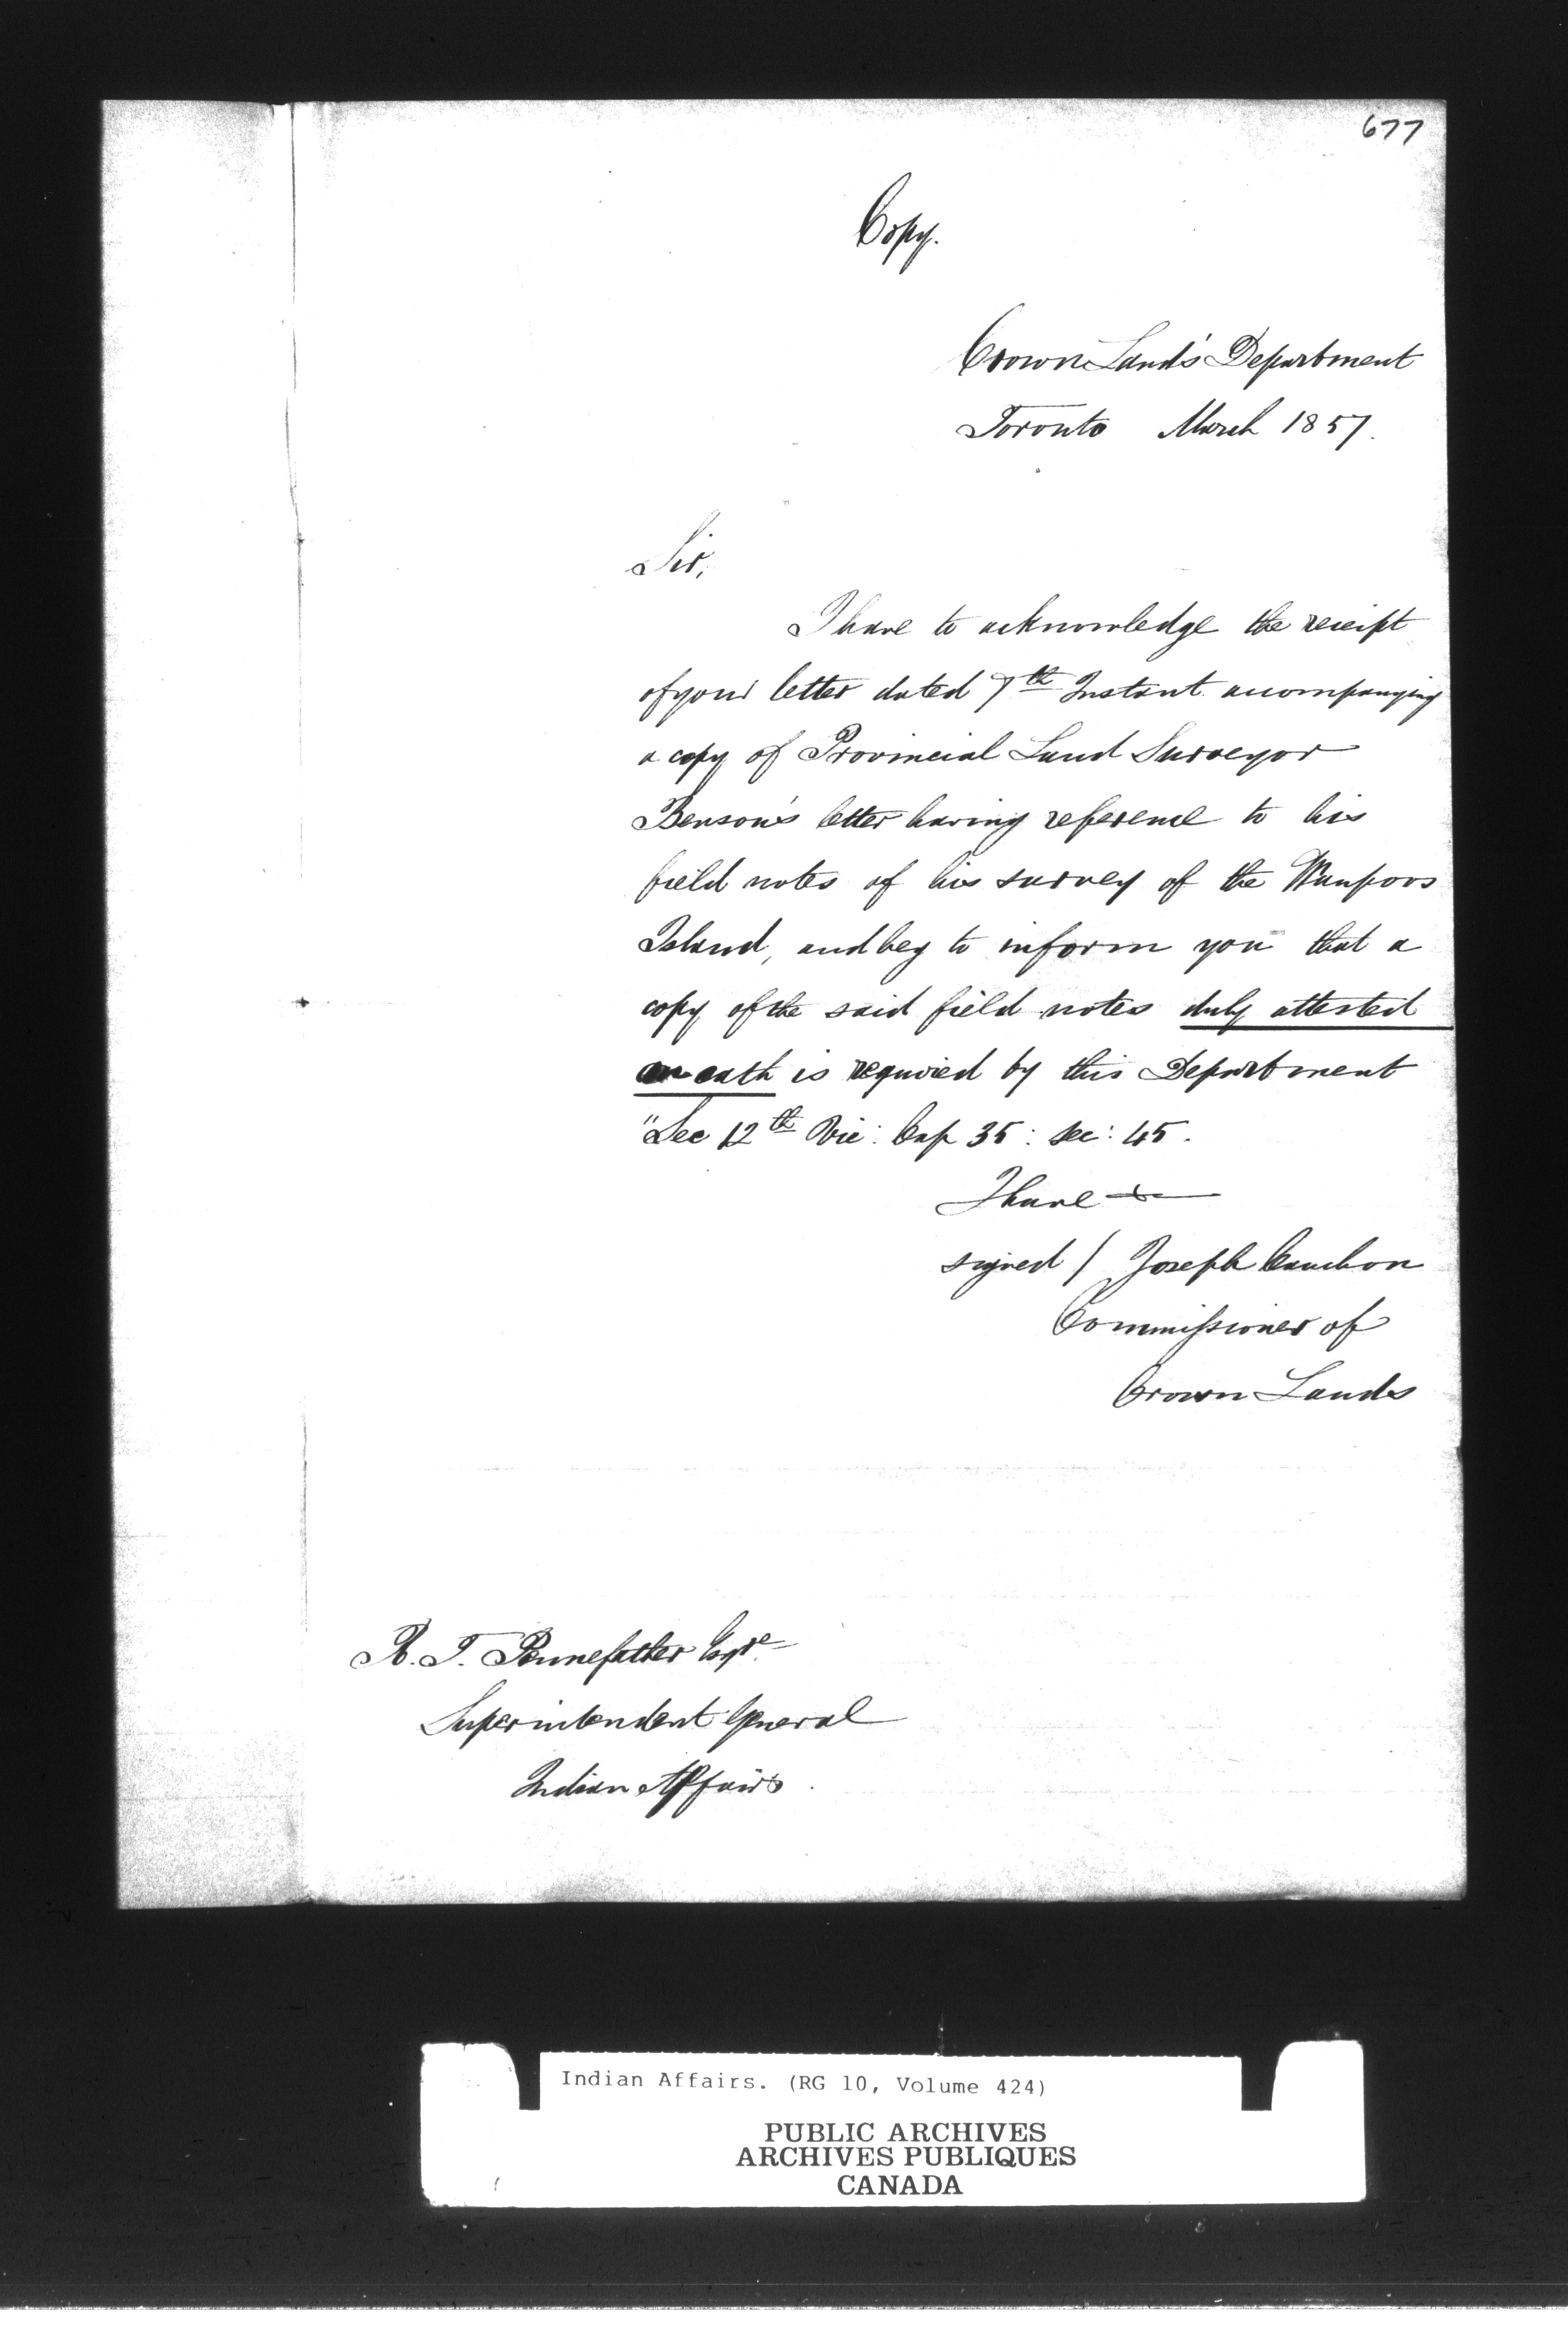 677
Copy.
Crown Land's Department
Toronto March 1857.
Sir,
I have to acknowledge the receipt
of your letter dated 7th Instant accompanying
a copy of Provincial Land Surveyor
Benson's letter having reference to his
field notes of his survey of the Waupoos
Island, and beg to inform you that a
copy of the said field notes duly attested
on oath is required by this Department
"See 12th Vic: Cap 35: sec: 45.
I have
signed / Joseph Cauchon
Commissioner of
Crown Lands
R. T. Pennefather Esqre
Superintendent General
Indian Affairs.
Indian Affairs. (RG 10, Volume 424)
PUBLIC ARCHIVES
ARCHIVES PUBLIQUES
CANADA